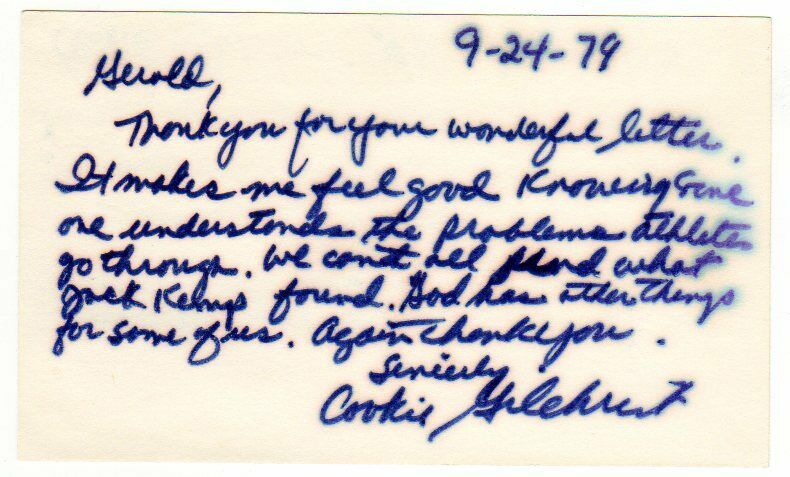 9-24-79
Gerald,
Thank you for your wonderful letter.
It makes me feel good knowing some
one understands the problems athletes
go through. We can't all find what
Jack Kemp found. God has other things
for some of us. Again thank you.
Sincerely
Cookie Gilchrist